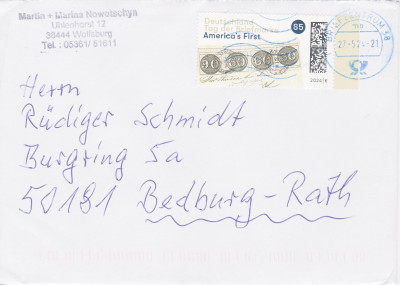 Martin + Marina Nowotschyn
12
38444 Wolfsburg
Tel.: 05361/ 51611
Deutschland
Tag der Briefmarke
America's First
85
BRIEFZENTRUM 38
27-5.24-21
Herrn
Rüdiger Schmidt
Burgring 5a
50181 Bedburg-Rath